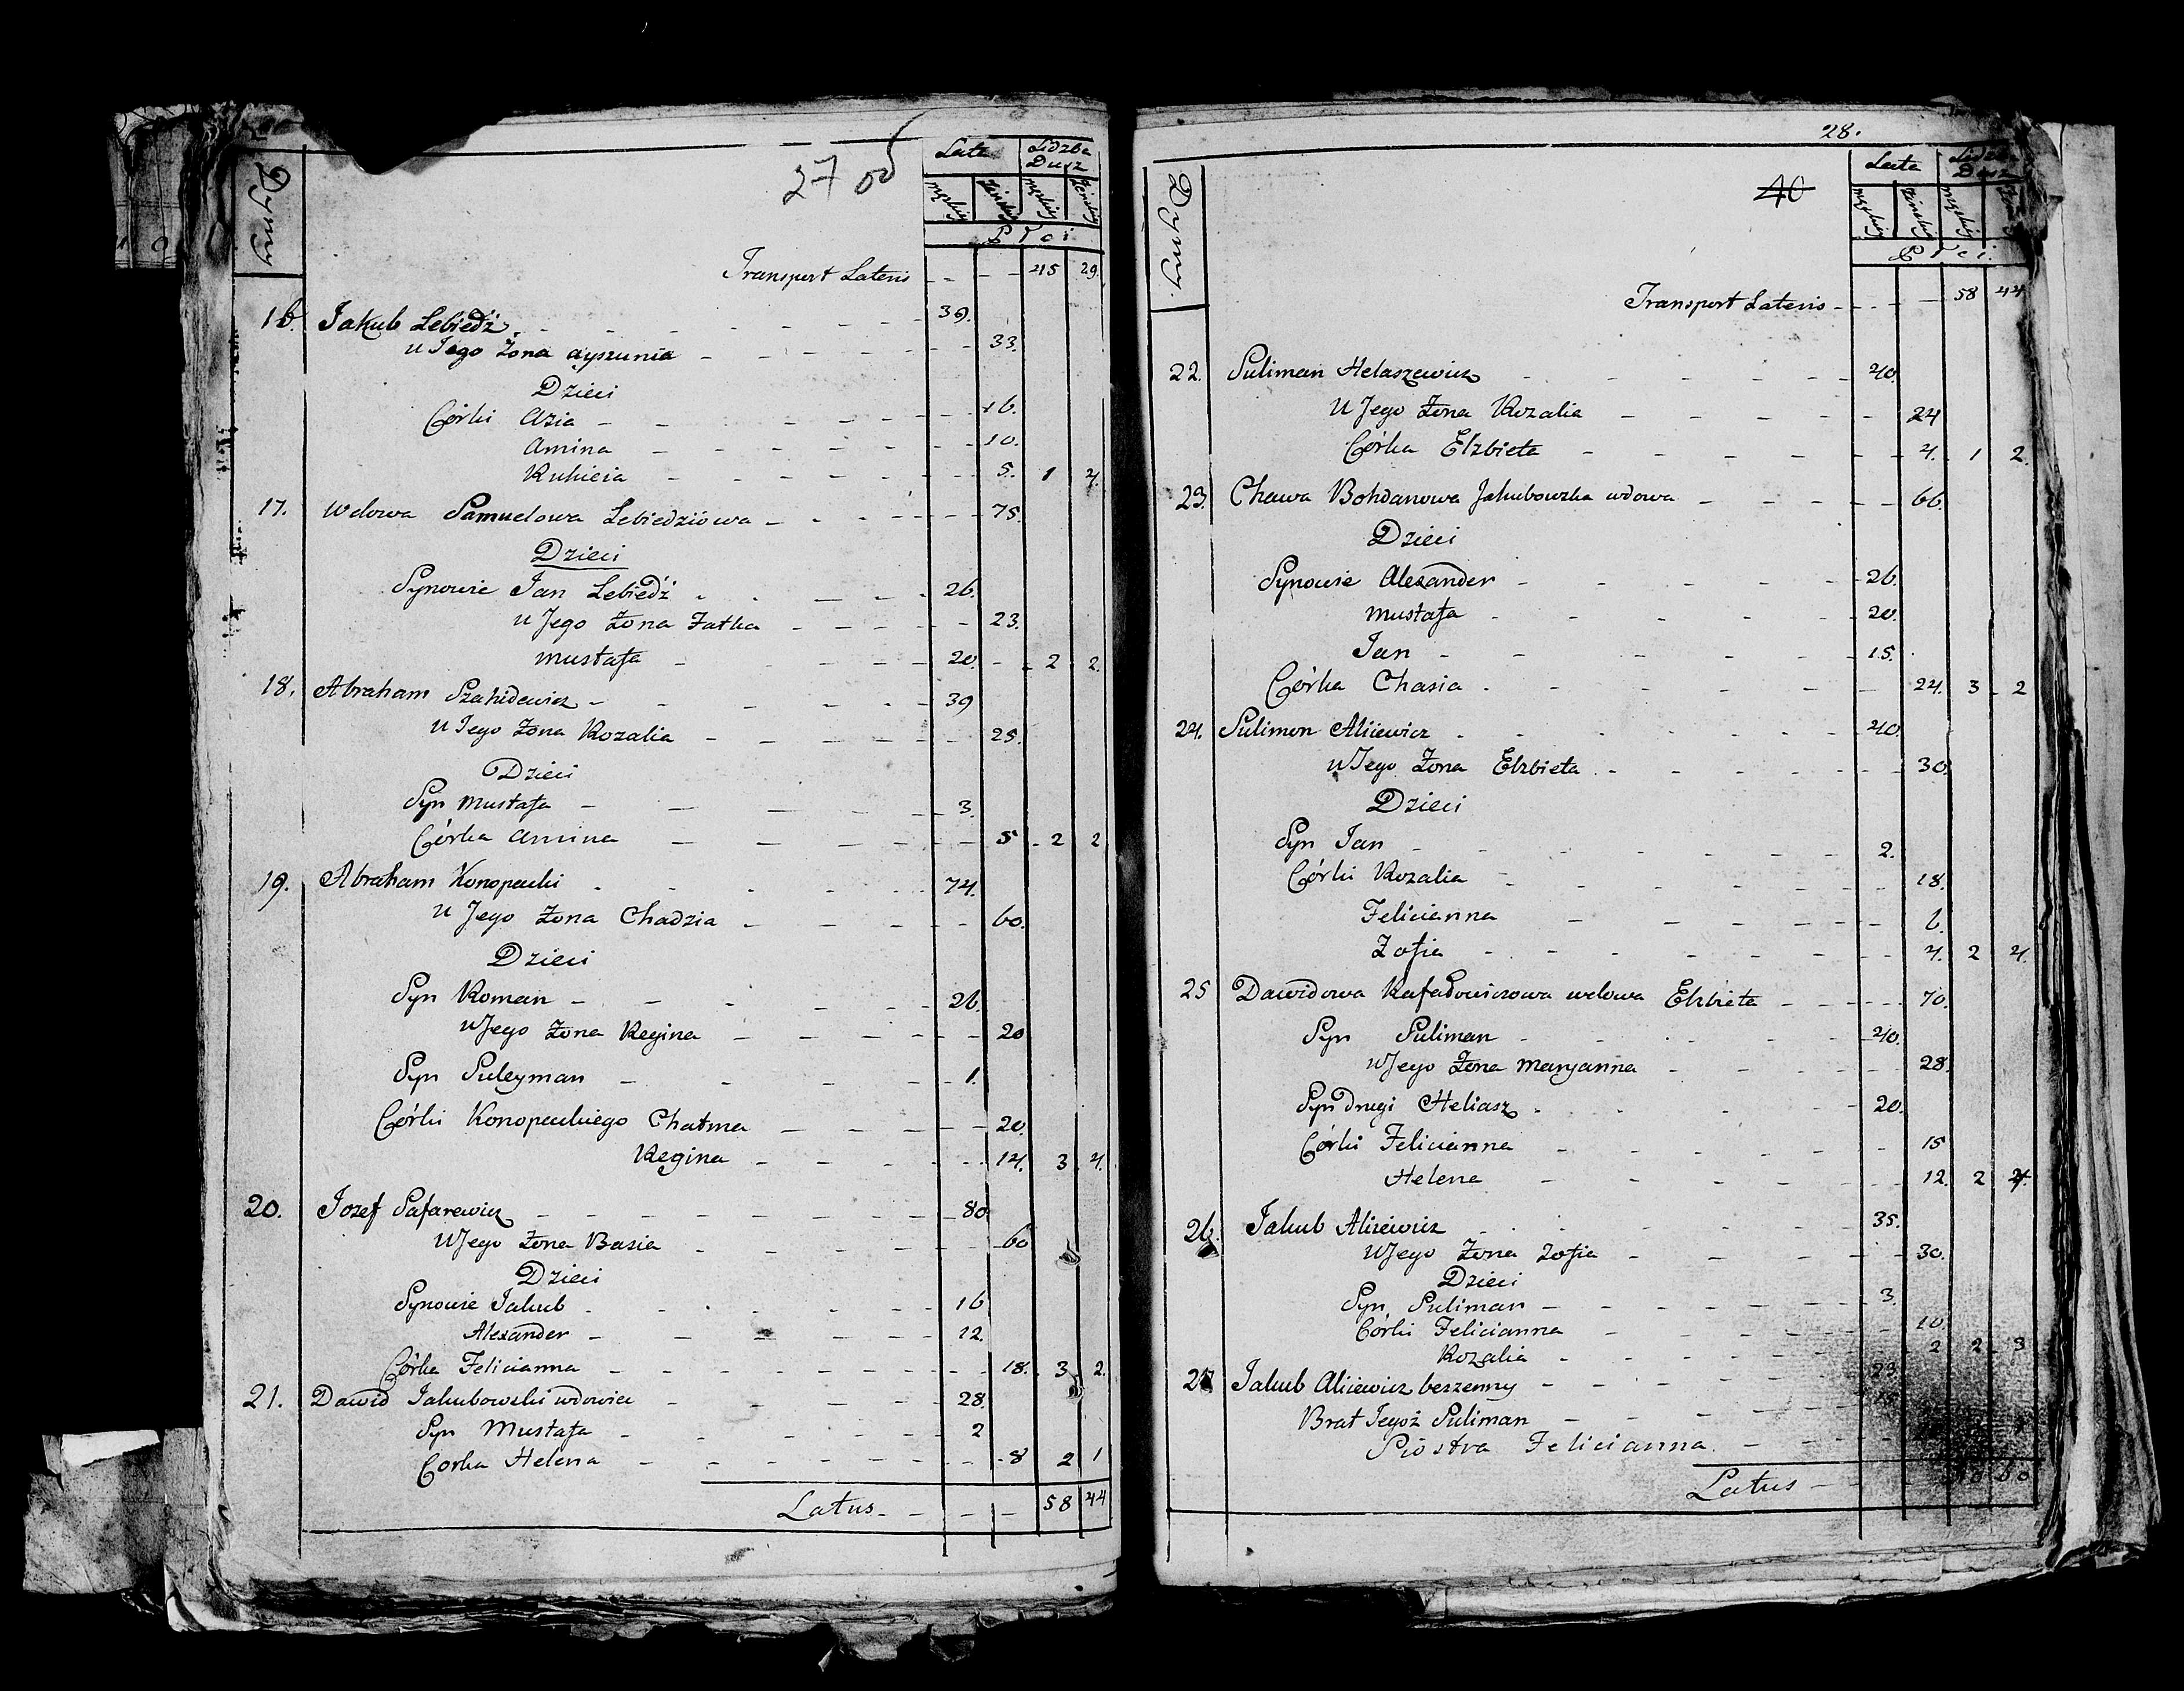 27 od
Dymy
Lata
Lidzba Dusz
męskiey
żeńskiey
męskiey
żeńskiey
Płci
Transport Lateris - - - 45 29.
16. Jakub Lebiedź - 39.
u Jego Żona Ayszunia - 33.
Dzieci
Córki Azia - 16.
Amina - 10.
Rukieia - 5. 1 4.
17. Wdowa Samuelowa Lebiedziówa - 75.
Dzieci
Synowie Jan Lebiedź - 26.
u Jego Żona Fatka - 23.
Mustafa - 20. - 2 2.
18. Abraham Szahidewicz - 39
u Jego Żona Rozalia - 25.
Dzieci
Syn Mustafa - 3.
Córka Amina - 5 - 2 2
19. Abraham Konopacki - 74.
u Jego Żona Chadzia - 60.
Dzieci
Syn Roman - 26.
u Jego Żona Regina - 20
Syn Suleyman - 1.
Córki Konopackiego Chatma - 20.
Regina - 14. 3 4.
20. Jozef Safarewicz - 80
u Jego Żona Basia - 60
Dzieci
Synowie Jakub - 16
Alexander - 12.
Córka Felicianna - 18. 3 2.
21. Dawid Jakubowski wdowiec - 28.
Syn Mustafa - 2
Corka Helena - 8 2 1
Latus - - - 58 44
28.
40
Dymy.
Lata
Lidzba Dusz
męskiey
żeńskiey
męskiey
Płci.
Transport Lateris - - - 58 44
22. Suliman Helaszewicz - 40.
u Jego Żona Rozalia - 24
Córka Elzbieta - 4. 1 2.
23. Chawa Bohdanowa Jakubowska wdowa - 66.
Dzieci
Synowie Alexander - 26.
Mustafa - 20.
Jan - 15.
Córka Chasia - 24. 3 - 2
24. Suliman Aliiewicz - 40.
u Jego Żona Elzbieta - 30.
Dzieci
Syn Jan - 2.
Córki Rozalia - 18.
Felicianna - 6.
Zofia - 4. 2 4.
25 Dawidowa Rafałowiczowa wdowa Elzbieta - 70.
Syn Suliman - 40.
u Jego Żona Maryanna - 28.
Syn drugi Heliasz - 20.
Córki Felicianna - 15
Helena - 12. 2 4.
26. Jakub Aliiewicz - 35.
u Jego Żona Zofia - 30.
Dzieci
Syn Suliman - 3.
Córki Felicianna - 10.
Rozalia - 2 2 3
27 Jakub Aliiewicz bezzenny - 23
Brat Jegoż Suliman
Siostra Felicianna.
Latus - 60